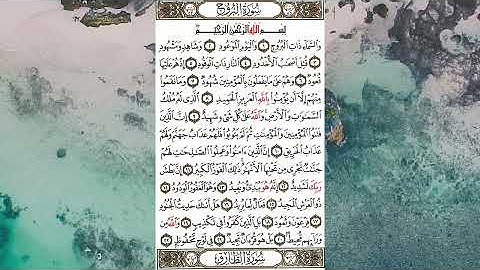 سُورَةُ البُرُوجِ
بِسْمِ ٱللَّهِ ٱلرَّحْمَٰنِ ٱلرَّحِيمِ
وَٱلسَّمَآءِ ذَاتِ ٱلْبُرُوجِ ١ وَٱلْيَوْمِ ٱلْمَوْعُودِ ٢ وَشَاهِدٍ وَمَشْهُودٍ
٣ قُتِلَ أَصْحَٰبُ ٱلْأُخْدُودِ ٤ ٱلنَّارِ ذَاتِ ٱلْوَقُودِ ٥ إِذْ هُمْ عَلَيْهَا
قُعُودٌ ٦ وَهُمْ عَلَىٰ مَا يَفْعَلُونَ بِٱلْمُؤْمِنِينَ شُهُودٌ ٧ وَمَا نَقَمُوا۟
مِنْهُمْ إِلَّآ أَن يُؤْمِنُوا۟ بِٱللَّهِ ٱلْعَزِيزِ ٱلْحَمِيدِ ٨ ٱلَّذِى لَهُۥ مُلْكُ
ٱلسَّمَٰوَٰتِ وَٱلْأَرْضِ وَٱللَّهُ عَلَىٰ كُلِّ شَىْءٍ شَهِيدٌ ٩ إِنَّ ٱلَّذِينَ
فَتَنُوا۟ ٱلْمُؤْمِنِينَ وَٱلْمُؤْمِنَٰتِ ثُمَّ لَمْ يَتُوبُوا۟ فَلَهُمْ عَذَابُ جَهَنَّمَ وَلَهُمْ
عَذَابُ ٱلْحَرِيقِ ١٠ إِنَّ ٱلَّذِينَ ءَامَنُوا۟ وَعَمِلُوا۟ ٱلصَّٰلِحَٰتِ لَهُمْ
جَنَّٰتٌ تَجْرِى مِن تَحْتِهَا ٱلْأَنْهَٰرُ ذَٰلِكَ ٱلْفَوْزُ ٱلْكَبِيرُ ١١ إِنَّ بَطْشَ
رَبِّكَ لَشَدِيدٌ ١٢ إِنَّهُۥ هُوَ يُبْدِئُ وَيُعِيدُ ١٣ وَهُوَ ٱلْغَفُورُ ٱلْوَدُودُ ١٤
ذُو ٱلْعَرْشِ ٱلْمَجِيدُ ١٥ فَعَّالٌ لِّمَا يُرِيدُ ١٦ هَلْ أَتَىٰكَ حَدِيثُ ٱلْجُنُودِ ١٧
فِرْعَوْنَ وَثَمُودَ ١٨ بَلِ ٱلَّذِينَ كَفَرُوا۟ فِى تَكْذِيبٍ ١٩ وَٱللَّهُ مِن
وَرَآئِهِم مُّحِيطٌۢ ٢٠ بَلْ هُوَ قُرْءَانٌ مَّجِيدٌ ٢١ فِى لَوْحٍ مَّحْفُوظٍۭ ٢٢
سُورَةُ الطَّارِقِ